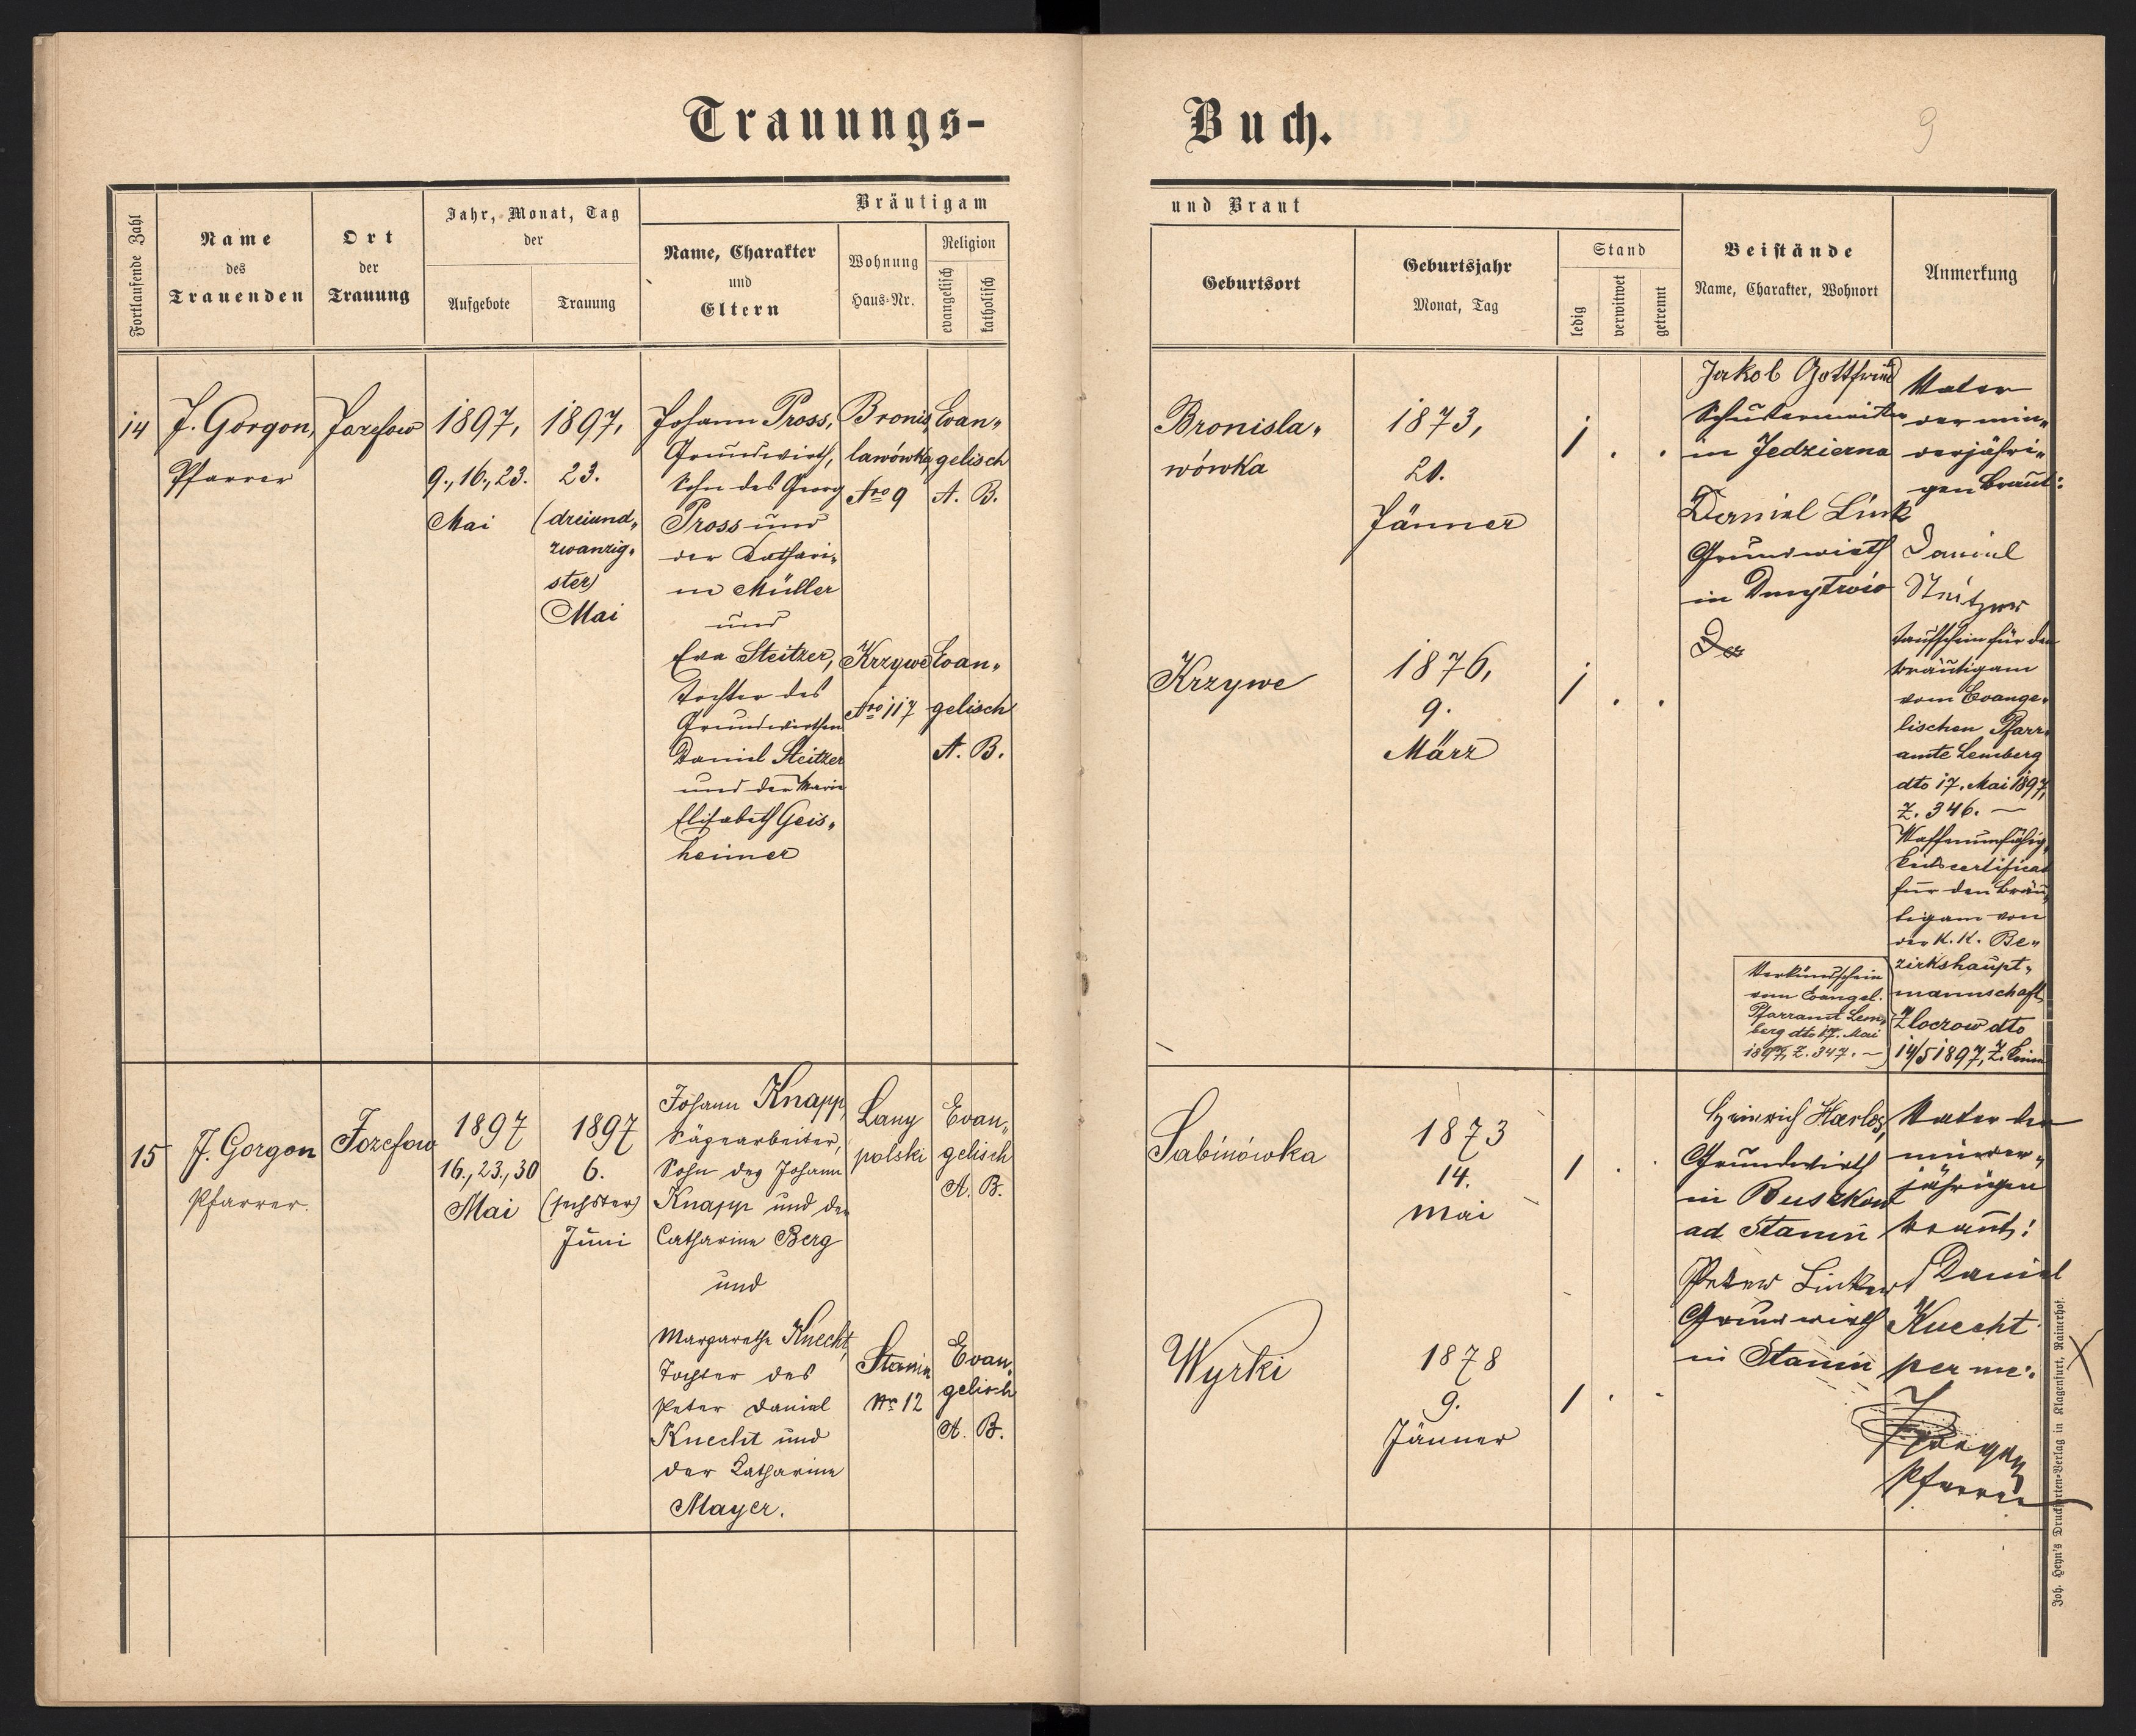 Trauungs-
Buch.
9
Fortlaufende Zahl
Name
des
Trauenden
Ort
der
Trauung
Jahr, Monat, Tag
der
Aufgebote
Trauung
Bräutigam
Name, Charakter
und
Eltern
Wohnung
Haus-Nr.
Religion
evangelisch
katholisch
und Braut
Geburtsort
Geburtsjahr
Monat, Tag
Stand
ledig
verwitwet
getrennt
Beistände
Name, Charakter, Wohnort
Anmerkung
14
J. Gorgon,
Pfarrer
Jozefow
1897,
9., 16., 23.
Mai
1897,
23.
(dreiund„
zwanzig„
ster)
Mai
Johann Pross,
Grundwirth,
Sohn des Georg
Pross und
der Kathari„
na Müller
und
Eva Steitzer,
Tochter des
Grundwirthen
Daniel Steitzer
und der Marie
Elisabeth Geis„
heimer
Bronis„
lawówka,
Nro 9
Krzywe
Nro 117
Evan„
gelisch
A. B.
Evan„
gelisch
A. B.
Bronisla„
wówka
Krzywe
1873,
21.
Jänner
1876,
9.
März
1 . .
1 . .
Jakob Gottfried
in Jedzierna
Daniel Link
Grundwirth
in Dmytrow
Der
Verkündschein
vom Evangel.
Pfarramt Lem„
berg dto 17. Mai
1897, Z. 347. –
Vater
der min„
derjähri„
gen Braut:
Daniel
Steitzer
Taufschein für den
Bräutigam
vom Evange„
lischen Pfarr„
amte Lemberg
dto 17. Mai 1897,
Z. 346. –
Waffenunfähig„
keitscertificat
für den Bräu„
tigam von
der k. k. Be„
zirkshaupt„
mannschaft
Zloczow dto
14/5 1897, Z. keine
15
J. Gorgon
Pfarrer.
Jozefow
1897
16., 23., 30
Mai
1897
6.
(sechster)
Juni
Johann Knapp,
Sägearbeiter,
Sohn des Johann
Knapp und der
Catharina Berg
und
Margaretha Knecht,
Tochter des
Peter Daniel
Knecht und
der Katharina
Mayer.
Lany
polski
Stanin
Nr. 12
Evan„
gelisch
A. B.
Evan„
gelisch
A. B.
Sabinówka
Wyrki
1873
14.
Mai
1878
9.
Jänner
1 . .
1 . .
Heinrich Harlos,
Grundwirth
in Buszkow
ad Stanin
Peter Linkert
Grundwirth
in Stanin
Vater der
minder„
jährigen
Braut:
Daniel
Knecht
per me:
J Gorgon
Pfarrer
X
Joh. Heyn's Drucksorten-Verlag in Klagenfurt, Rainerhof.